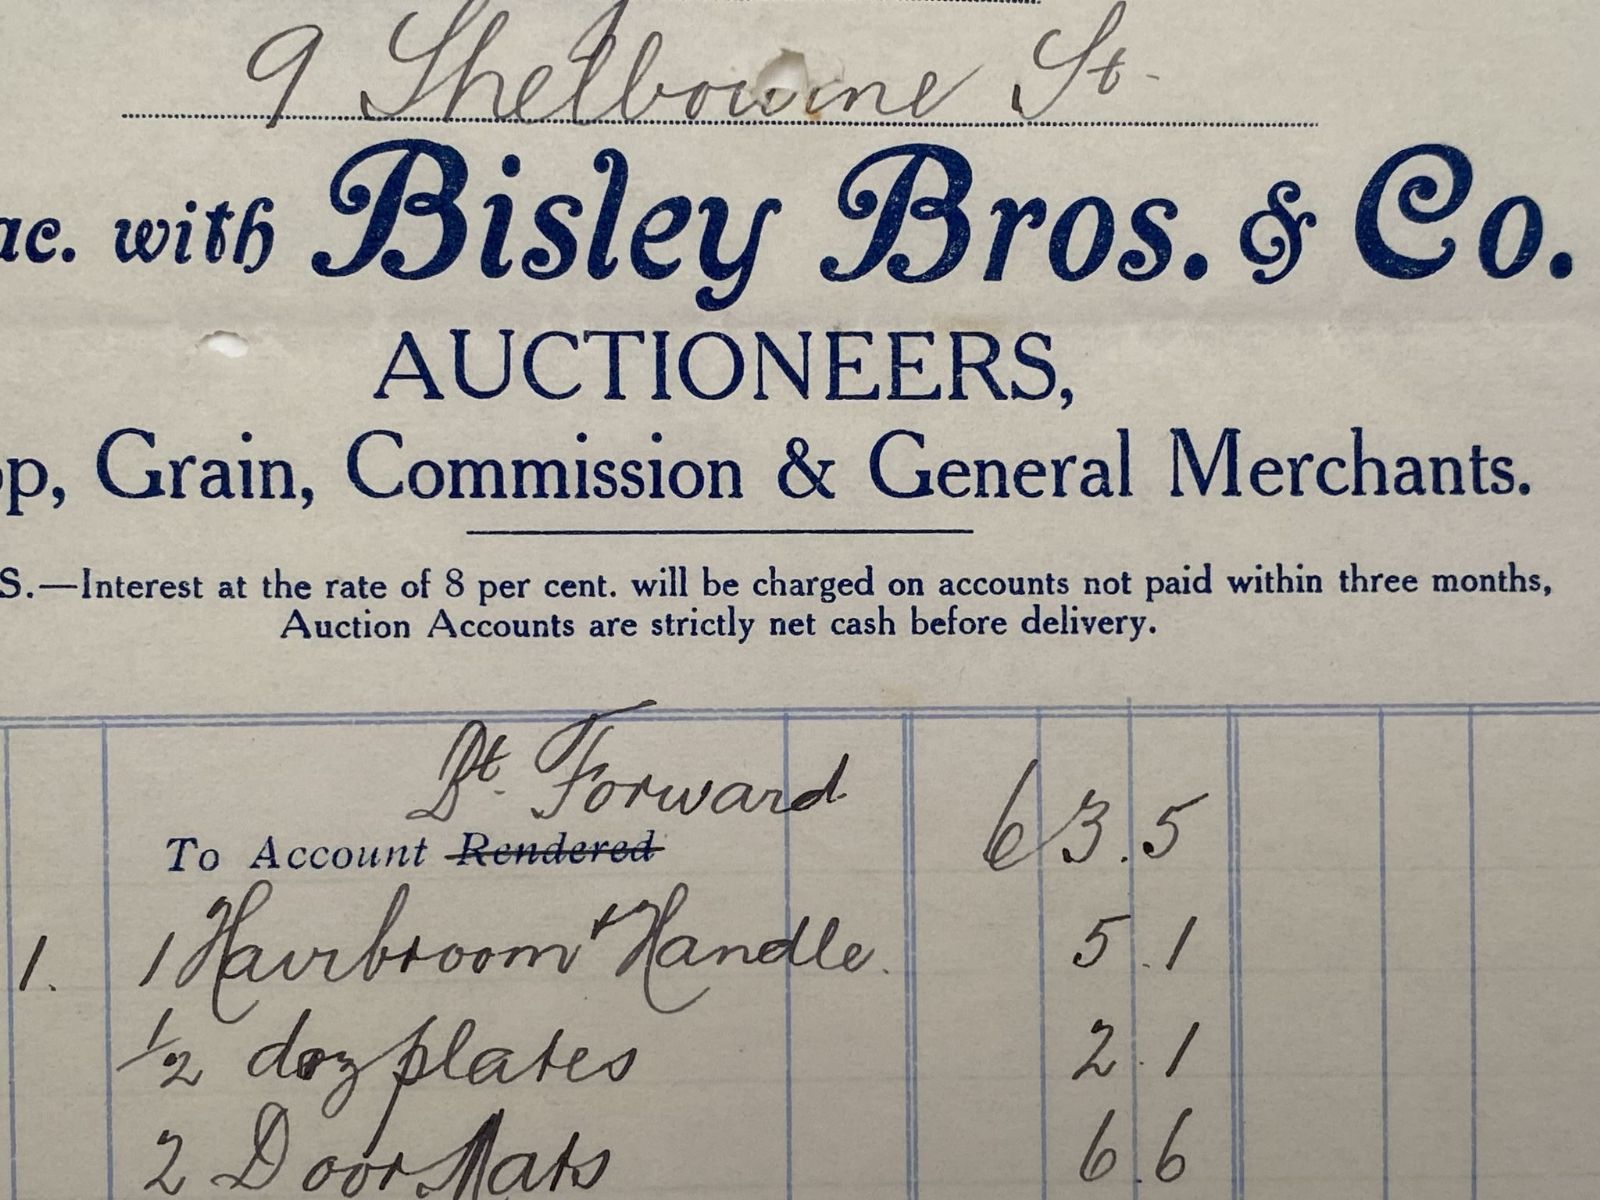 9 Shelbourne St.
ac. with Bisley Bros. & Co.
AUCTIONEERS,
op, Grain, Commission & General Merchants.
S.—Interest at the rate of 8 per cent. will be charged on accounts not paid within three months,
Auction Accounts are strictly net cash before delivery.
Bt. Forward 6 3.5
To Account Rendered
1. 1 Hairbroom + Handle. 5.1
1/2 doz plates 2.1
2 Door Mats 6.6